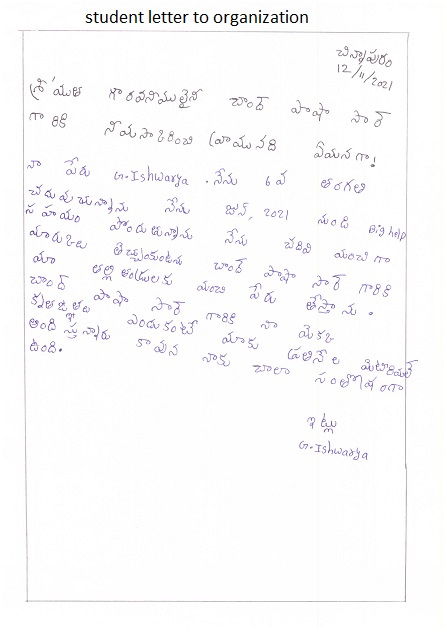 student letter to organization
చిన్నాపురం
12/11/2021
శ్రీయుత గౌరవనీయులైన చాంద్ పాషా సార్
గారికి నమస్కరించి వ్రాయునది ఏమనగా!
నా పేరు G.Ishwarya. నేను 6వ తరగతి
చదువుచున్నాను నేను జూన్, 2021 నుండి Big help
సహాయం పొందుతున్నాను నేను చదివి మంచిగా
మార్కులు తెచ్చుకుంటను చాంద్ పాషా సార్ గారికి
మా తల్లి తండ్రులకు మంచి పేరు తెస్తాను.
చాంద్ పాషా సార్ గారికి నా యొక్క
కృతజ్ఞతలు ఎందుకంటే మాకు ప్రతినెల
అందిస్తున్నారు కావున నాకు చాలా సంతోషంగా
ఉంది.
ఇట్లు
G.Ishwarya